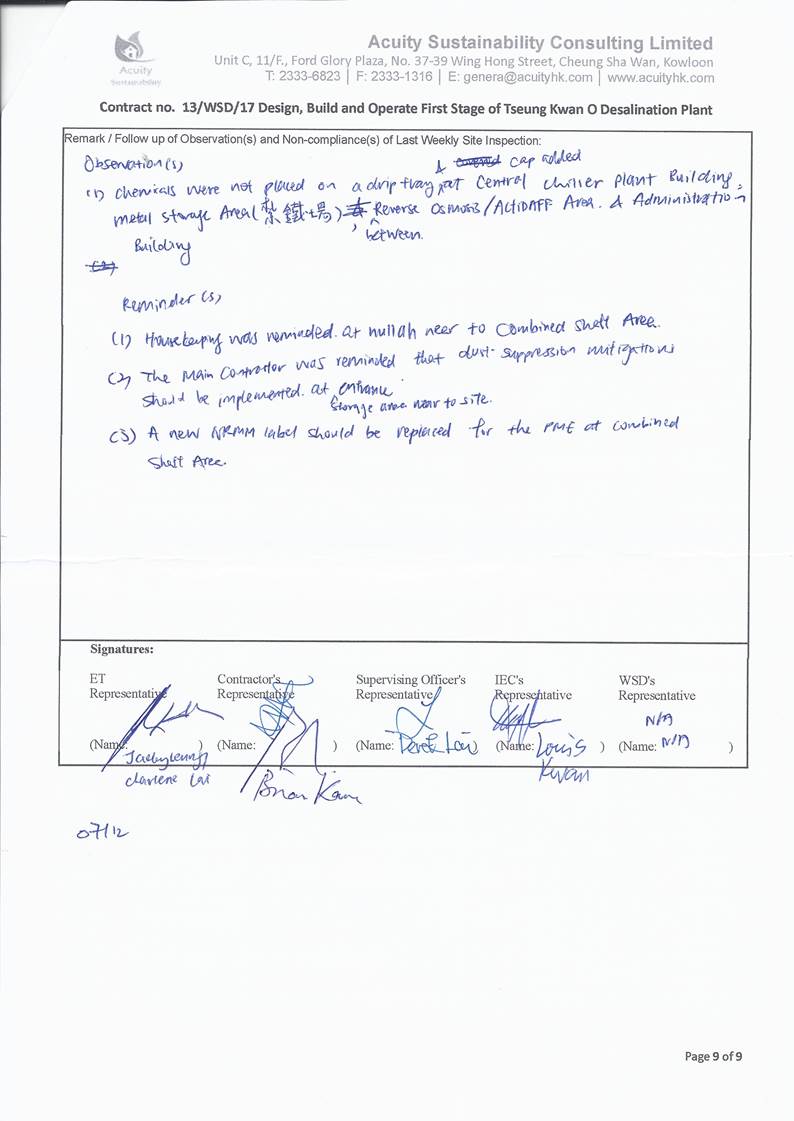 Acuity
Sustainability
Acuity Sustainability Consulting Limited
Unit C, 11/F., Ford Glory Plaza, No. 37-39 Wing Hong Street, Cheung Sha Wan, Kowloon
T: 2333-6823 | F: 2333-1316 | E: genera@acuityhk.com | www.acuityhk.com
Contract no. 13/WSD/17 Design, Build and Operate First Stage of Tseung Kwan O Desalination Plant
Remark / Follow up of Observation(s) and Non-compliance(s) of Last Weekly Site Inspection:
Observation(s)
& cap added
(1) Chemicals were not placed on a drip tray at Central chiller Plant Building,
metal storage Area (紮鐵場), Reverse Osmosis/ActiDAFF Area. & Administration
between.
Building
Reminder(s)
(1) Housekeeping was reminded. at nullah near to Combined Shaft Area.
(2) The Main Contractor was reminded that dust suppression mitigations
should be implemented. at entrance
storage area near to site.
(3) A new NRMM label should be replaced for the PME at combined
Shaft Area.
Signatures:
ET Contractor's Supervising Officer's IEC's WSD's
Representative Representative Representative Representative Representative
N/A
(Name: ) (Name: ) (Name: Derek Loi ) (Name: Louis ) (Name: N/A )
Kwan
Clarlene Lai
Brian Kam
07/12
Page 9 of 9